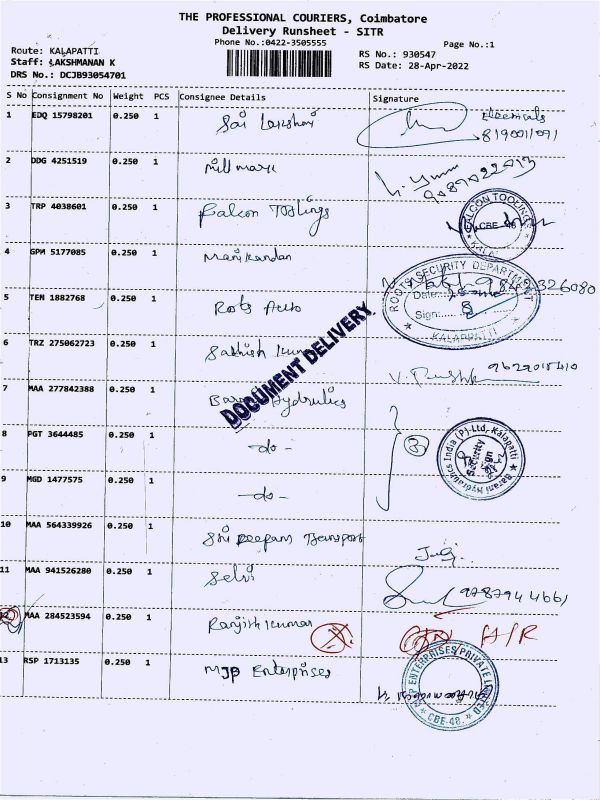 THE PROFESSIONAL COURIERS, Coimbatore
Delivery Runsheet - SITR
Phone No.:0422-3505555
Page No.:1
Route: KALAPATTI
Staff: LAKSHMANAN K
DRS No.: DCJB93054701
RS No.: 930547
RS Date: 28-Apr-2022
S No Consignment No Weight PCS Consignee Details Signature
1 EDQ 15798201 0.250 1 Sai Lakshmi
8190011091
2 DDG 4251519 0.250 1 Mill max
3 TRP 4038601 0.250 1 Falcon Toolings
FALCON TOOLINGS
CBE-48
4 GPM 5177085 0.250 1 Manikandan
9842326080
5 TEN 1882768 0.250 1 Roots Auto
ROOTS SECURITY DEPARTMENT
Date:
Sign:
KALAPATTI
6 TRZ 275062723 0.250 1 Sathish Kumar
DOCUMENT DELIVERY
7 MAA 277842388 0.250 1 Barani Hydrulics
8 PGT 3644485 0.250 1 -do-
3
Barani Hydraulics India (P) Ltd, Kalapatti
Security
Sign
9 MGD 1477575 0.250 1 -do-
10 MAA 564339926 0.250 1 Sri Deepam Transport
11 MAA 941526280 0.250 1 Selvi
9787944661
12 MAA 284523594 0.250 1 Ranjith kumar
A/R
13 RSP 1713135 0.250 1 MJP Enterprises
MJP ENTERPRISES PRIVATE LIMITED
CBE-48.